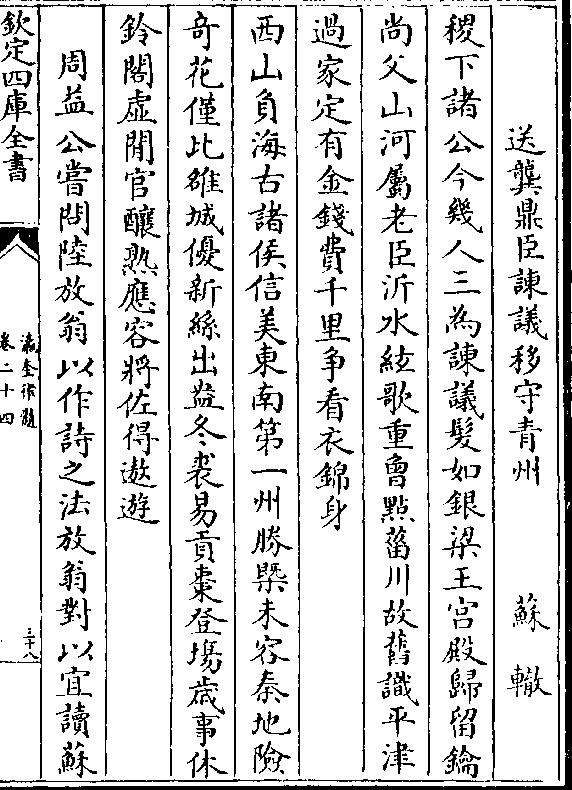 送龔鼎臣諫議移守青州 蘇轍
稷下諸公今幾人三為諫議髮如銀梁王宫殿歸留鑰
尚父山河屬老臣沂水絃歌重曾㸃菑川故舊識平津
過家定有金錢費千里争看衣錦身
西山負海古諸侯信美東南第一州勝槩未容秦地險
竒花僅比雒城優新絲出盎冬裘易貢棗登塲歲事休
鈴閣虛閒官釀熟應容將佐得遨遊
周益公嘗問陸放翁以作詩之法放翁對以宜讀蘇
欽定四庫全書
瀛奎律髓
卷二十四
三十八